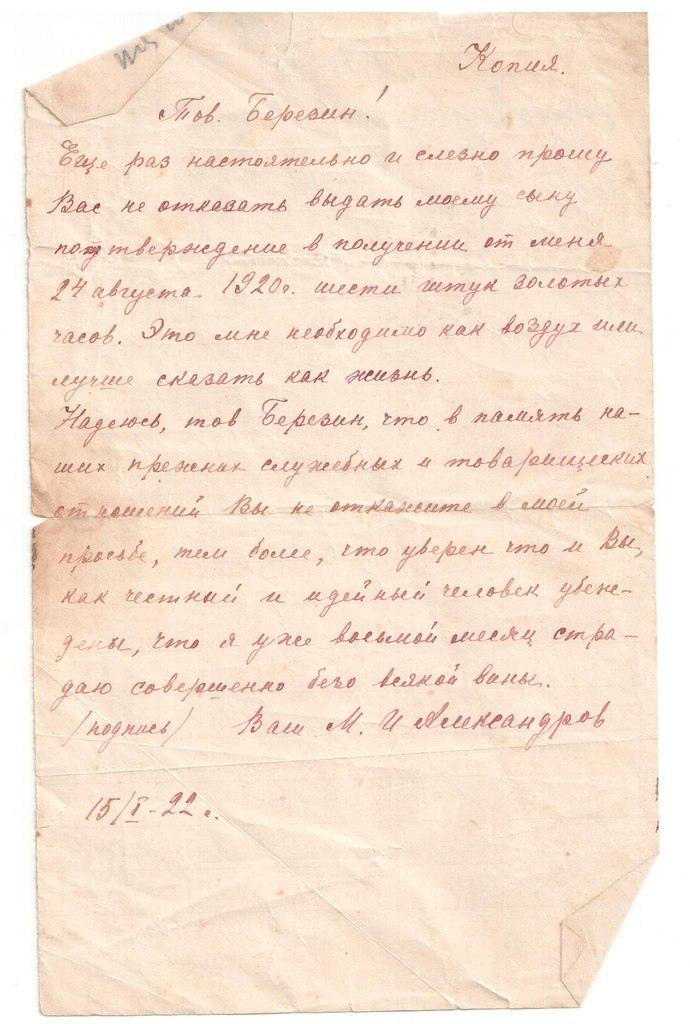 Копия.
Тов. Березин!
Еще раз настоятельно и слезно прошу
Вас не отказать выдать моему сыну
подтверждение в получении от меня
24 августа 1920г. шести штук золотых
часов. Это мне необходимо как воздух или
лучше сказать как жизнь.
Надеюсь, тов Березин, что в память на-
ших прежних служебных и товарищеских
отношений Вы не откажите в моей
просьбе, тем более, что уверен что и Вы,
как честный и идейный человек убеж-
дены, что я уже восьмой месяц стра-
даю совершенно безо всякой вины.
/подпись/ Ваш М. И Александров
15/I-22 г.